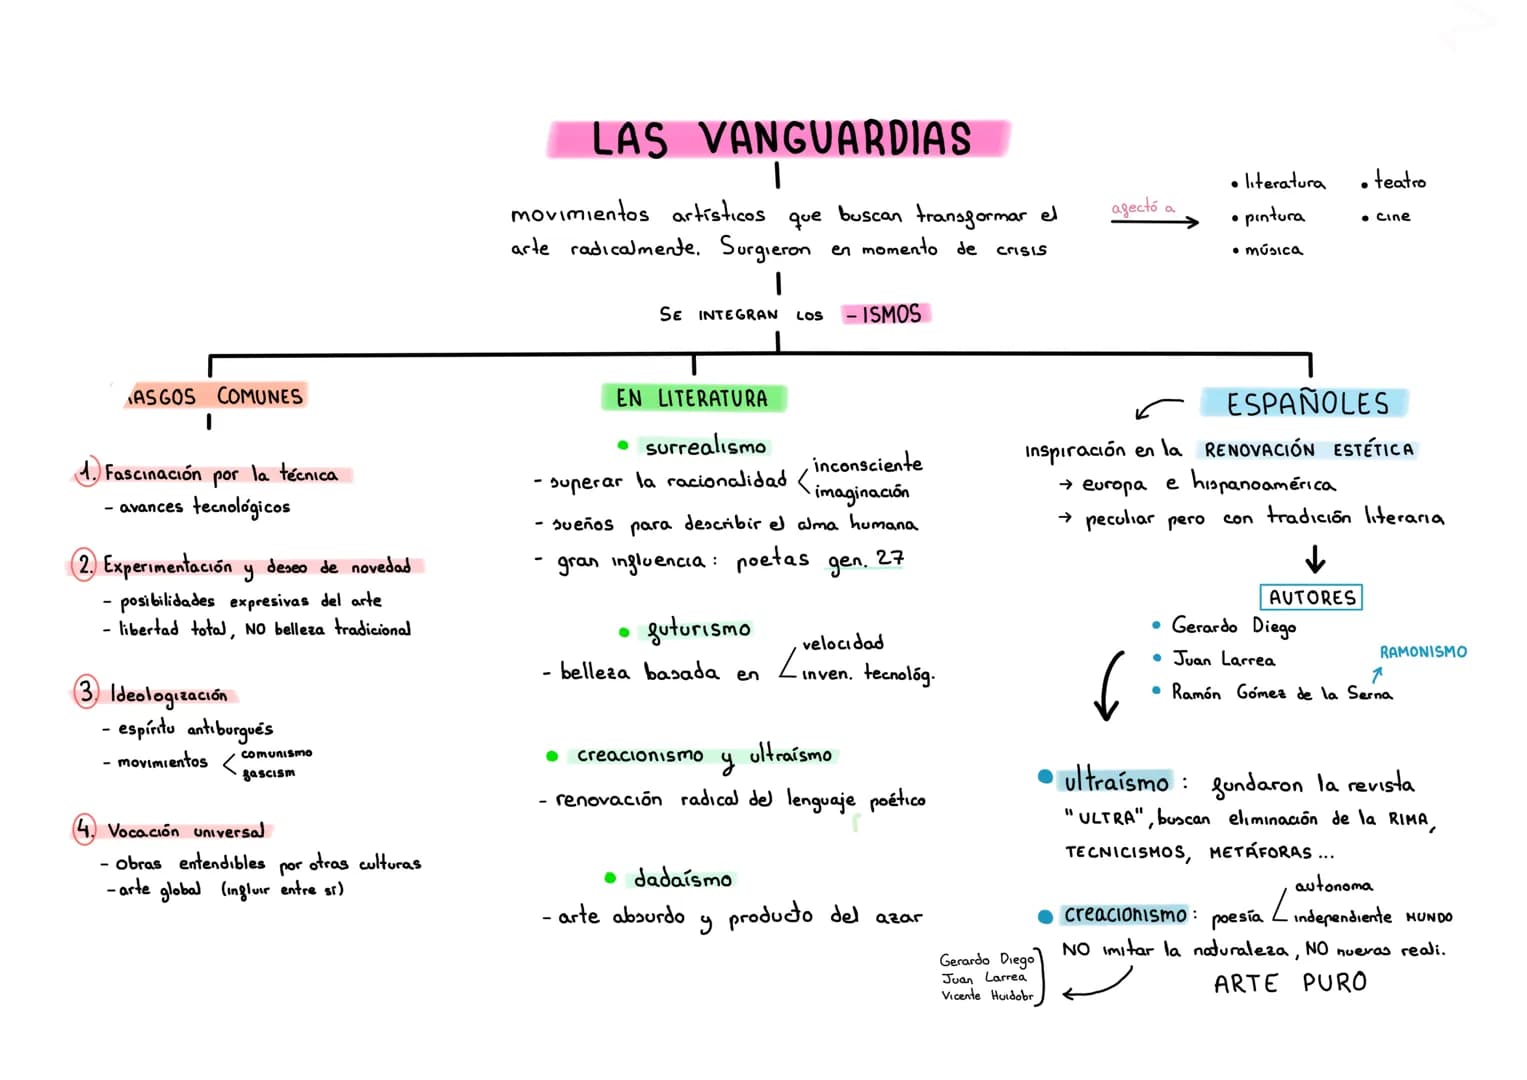 LAS VANGUARDIAS
movimientos artísticos que buscan transformar el
arte radicalmente. Surgieron en momento de crisis
afectó a
• literatura
• pintura
• música
• teatro
• cine
SE INTEGRAN LOS - ISMOS
RASGOS COMUNES
1. Fascinación por la técnica
- avances tecnológicos
2. Experimentación y deseo de novedad
- posibilidades expresivas del arte
- libertad total, NO belleza tradicional
3. Ideologización
- espíritu antiburgués
- movimientos
comunismo
fascism
4. Vocación universal
- obras entendibles por otras culturas
- arte global (influir entre sí)
EN LITERATURA
• surrealismo
- superar la racionalidad
inconsciente
imaginación
- sueños para describir el alma humana
- gran influencia: poetas gen. 27
• futurismo
- belleza basada en
velocidad
inven. tecnológ.
• creacionismo y ultraísmo
- renovación radical del lenguaje poético
• dadaísmo
- arte absurdo y producto del azar
ESPAÑOLES
inspiración en la RENOVACIÓN ESTÉTICA
→ europa e hispanoamérica
→ peculiar pero con tradición literaria
AUTORES
• Gerardo Diego
• Juan Larrea
• Ramón Gómez de la Serna
RAMONISMO
• ultraísmo: fundaron la revista
"ULTRA", buscan eliminación de la RIMA,
TECNICISMOS, METÁFORAS...
• creacionismo: poesía
autonoma
independiente MUNDO
NO imitar la naturaleza, NO nuevas reali.
ARTE PURO
Gerardo Diego
Juan Larrea
Vicente Huidobr